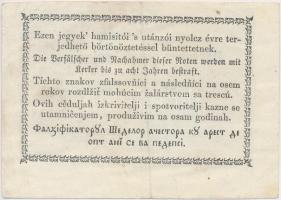 Ezen jegyek' hamisítói 's utánzói nyolcz évre ter-
jedhető börtönöztetéssel büntettetnek.
Die Verfälscher und Nachahmer dieser Noten werden mit
Kerker bis zu acht Jahren bestraft.
Tíchto znakov zfalssovňíci a následňíci na osem
rokov rozdlžiť mohúcim žalárstvom sa trescú.
Ovih cêduljah izkrivitelji i spotvoritelji kazne se
utamničenjem, produživim na osam godinah.
Фалзіфікаторȣл Шеделор ачестора кȣ арест де
опт анї се ва педепсі.